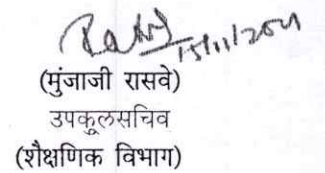 15/11/2021
(मुंजाजी रासवे)
उपकुलसचिव
(शैक्षणिक विभाग)